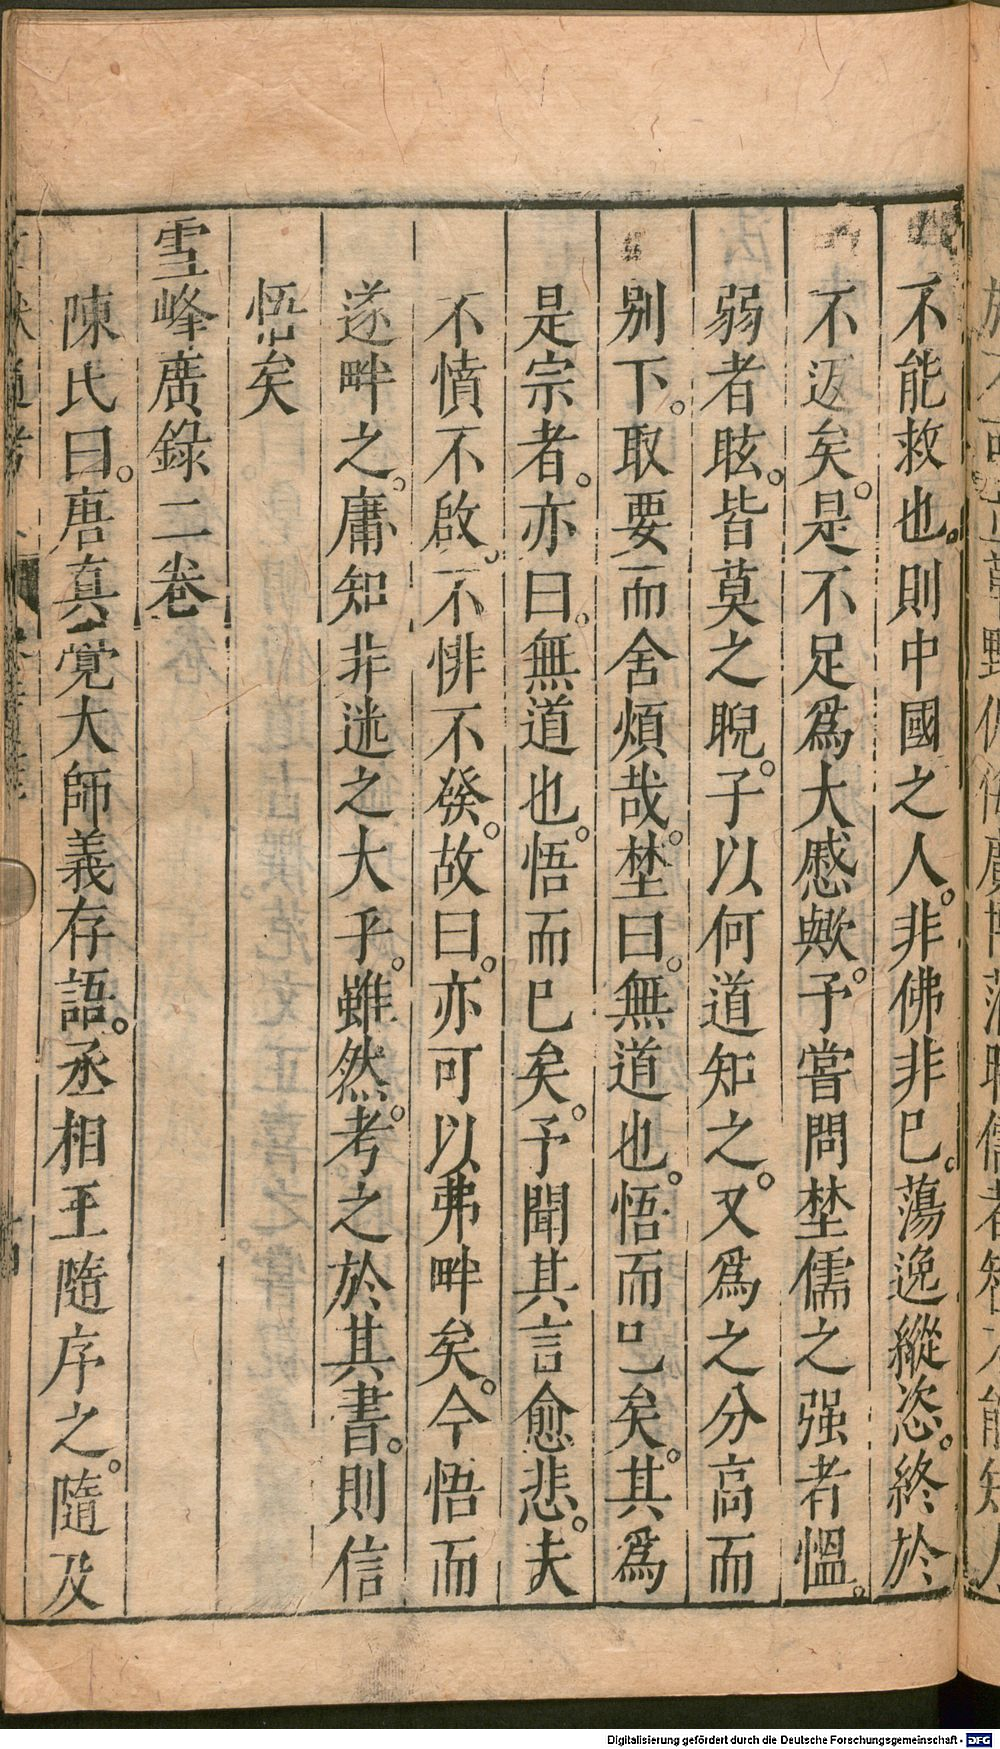 不能救也。則中國之人。非佛非巳。蕩逸縱恣。終於
不返矣。是不足爲大慼歟。予嘗問埜儒之强者慍。
弱者眩。皆莫之睨。子以何道知之。又爲之分高而
别下。取要而舍煩哉。埜曰。無道也。悟而巳矣。其爲
是宗者。亦曰。無道也。悟而巳矣。予聞其言愈悲。夫
不憤不啟。不悱不發。故曰。亦可以弗畔矣。今悟而
遂畔之。庸知非迷之大乎。雖然。考之於其書。則信
悟矣
雪峰廣錄二卷
陳氏曰。唐真覺大師義存語。丞相王隨序之。隨及
Digitalisierung gefördert durch die Deutsche Forschungsgemeinschaft - DFG